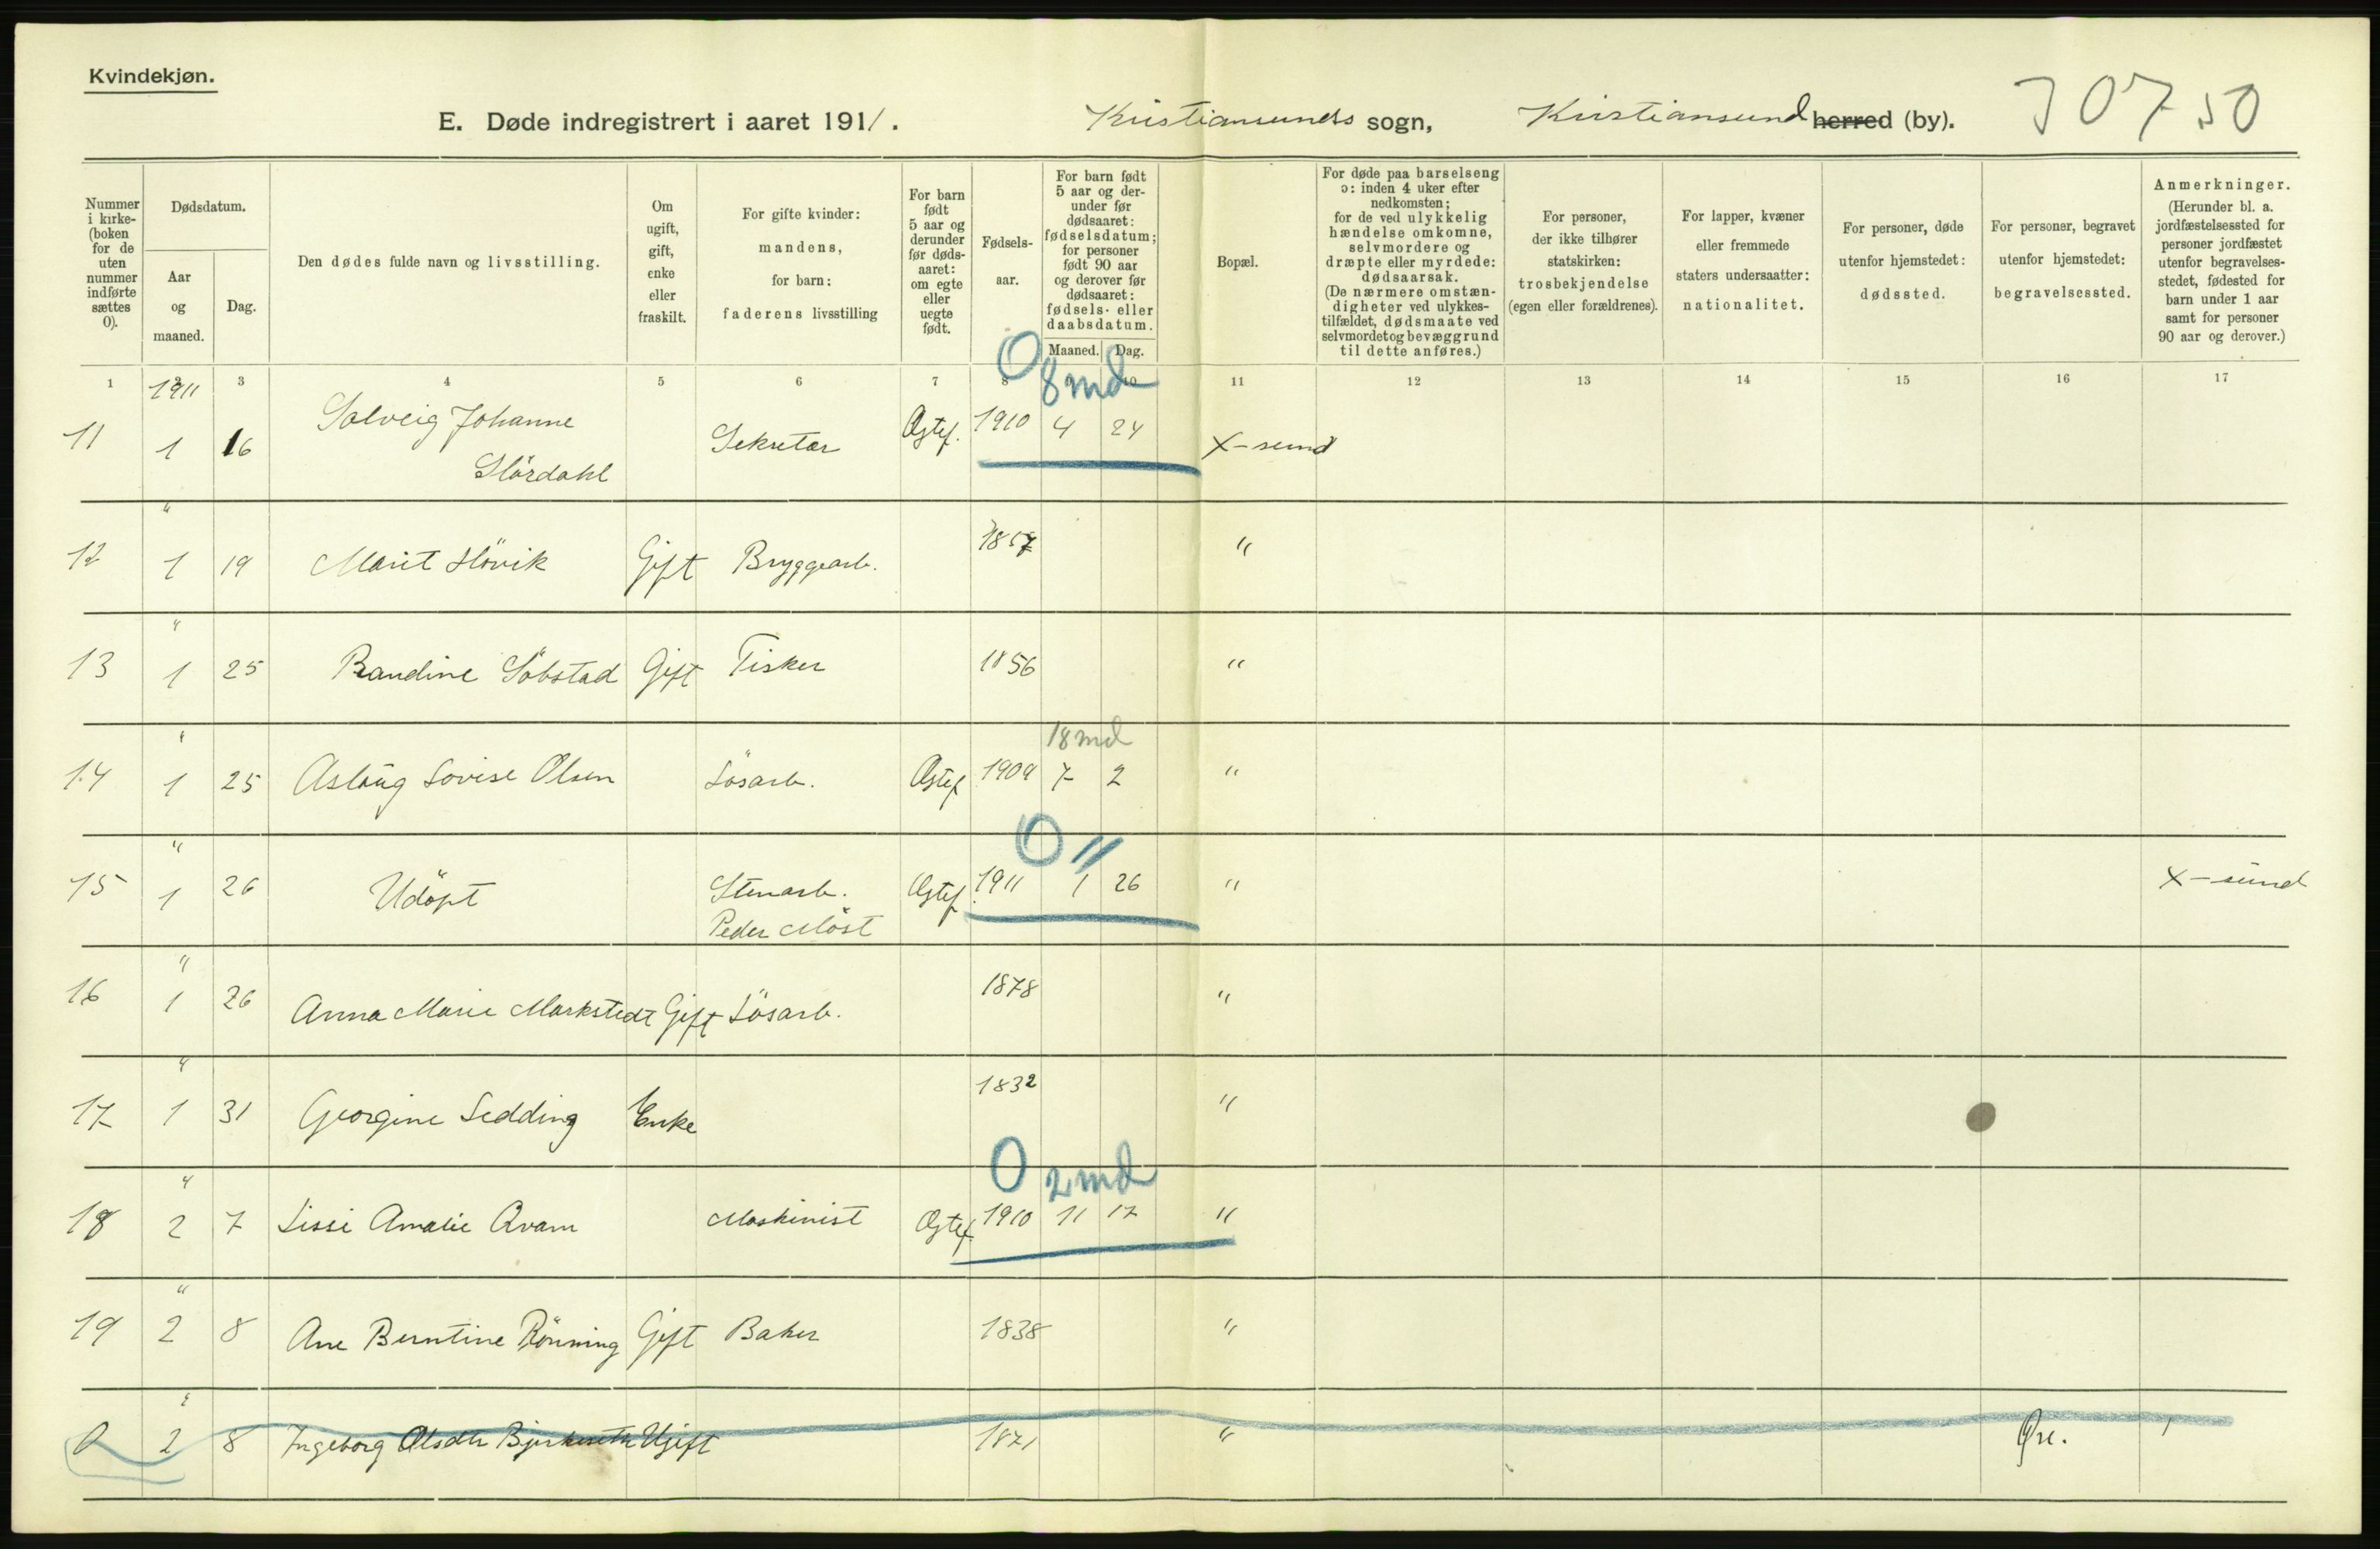 Kvindekjøn.
E. Døde indregistrert i aaret 1911. Kristiansunds sogn, Kristiansund herred (by). 30750
Nummer i kirke-(boken for de uten nummer indførte sættes 0).
Dødsdatum.
Aar og maaned.
Dag.
Den dødes fulde navn og livsstilling.
Om ugift, gift, enke eller fraskilt.
For gifte kvinder: mandens, for barn: faderens livsstilling
For barn født 5 aar og derunder før døds-aaret: om egte eller uegte født.
Fødsels-aar.
For barn født 5 aar og der-under før dødsaaret: fødselsdatum; for personer født 90 aar og derover før dødsaaret: fødsels- eller daabsdatum.
Maaned. Dag.
Bopæl.
For døde paa barselseng ɔ: inden 4 uker efter nedkomsten; for de ved ulykkelig hændelse omkomne, selvmordere og dræpte eller myrdede: dødsaarsak. (De nærmere omstæn-digheter ved ulykkes-tilfældet, dødsmaate ved selvmordet og bevæggrund til dette anføres.)
For personer, der ikke tilhører statskirken: trosbekjendelse (egen eller forældrenes).
For lapper, kvæner eller fremmede staters undersaatter: nationalitet.
For personer, døde utenfor hjemstedet: dødssted.
For personer, begravet utenfor hjemstedet: begravelsessted.
Anmerkninger. (Herunder bl. a. jordfæstelsessted for personer jordfæstet utenfor begravelses-stedet, fødested for barn under 1 aar samt for personer 90 aar og derover.)
1 2 3 4 5 6 7 8 9 10 11 12 13 14 15 16 17
1911 0 8 md
11 1 16 Solveig Johanne Sekretær Ægtef. 1910 4 24 X-sund
Stördahl
"
12 1 19 Marit Hövik Gift Bryggearb. 1857 "
"
13 1 25 Randine Söbstad Gift Fisker 1856 "
" 18 md
14 1 25 Aslaug Lovise Olsen Lösarb. Ægtef 1909 7 2 "
" 0 "
15 1 26 Udöpt Stenarb. Ægtef. 1911 1 26 " X-sund
Peder Möst
"
16 1 26 Anna Marie Markstedt Gift Lösarb. 1878 "
"
17 1 31 Georgine Sedding Enke 1832 "
" 0 2 md
18 2 7 Lissi Amalie Kvam Maskinist Ægtef. 1910 11 17 "
"
19 2 8 Ane Berntine Rönning Gift Baker 1838 "
"
0 2 8 Ingeborg Olsdtr Ugift 1871 " Øre.